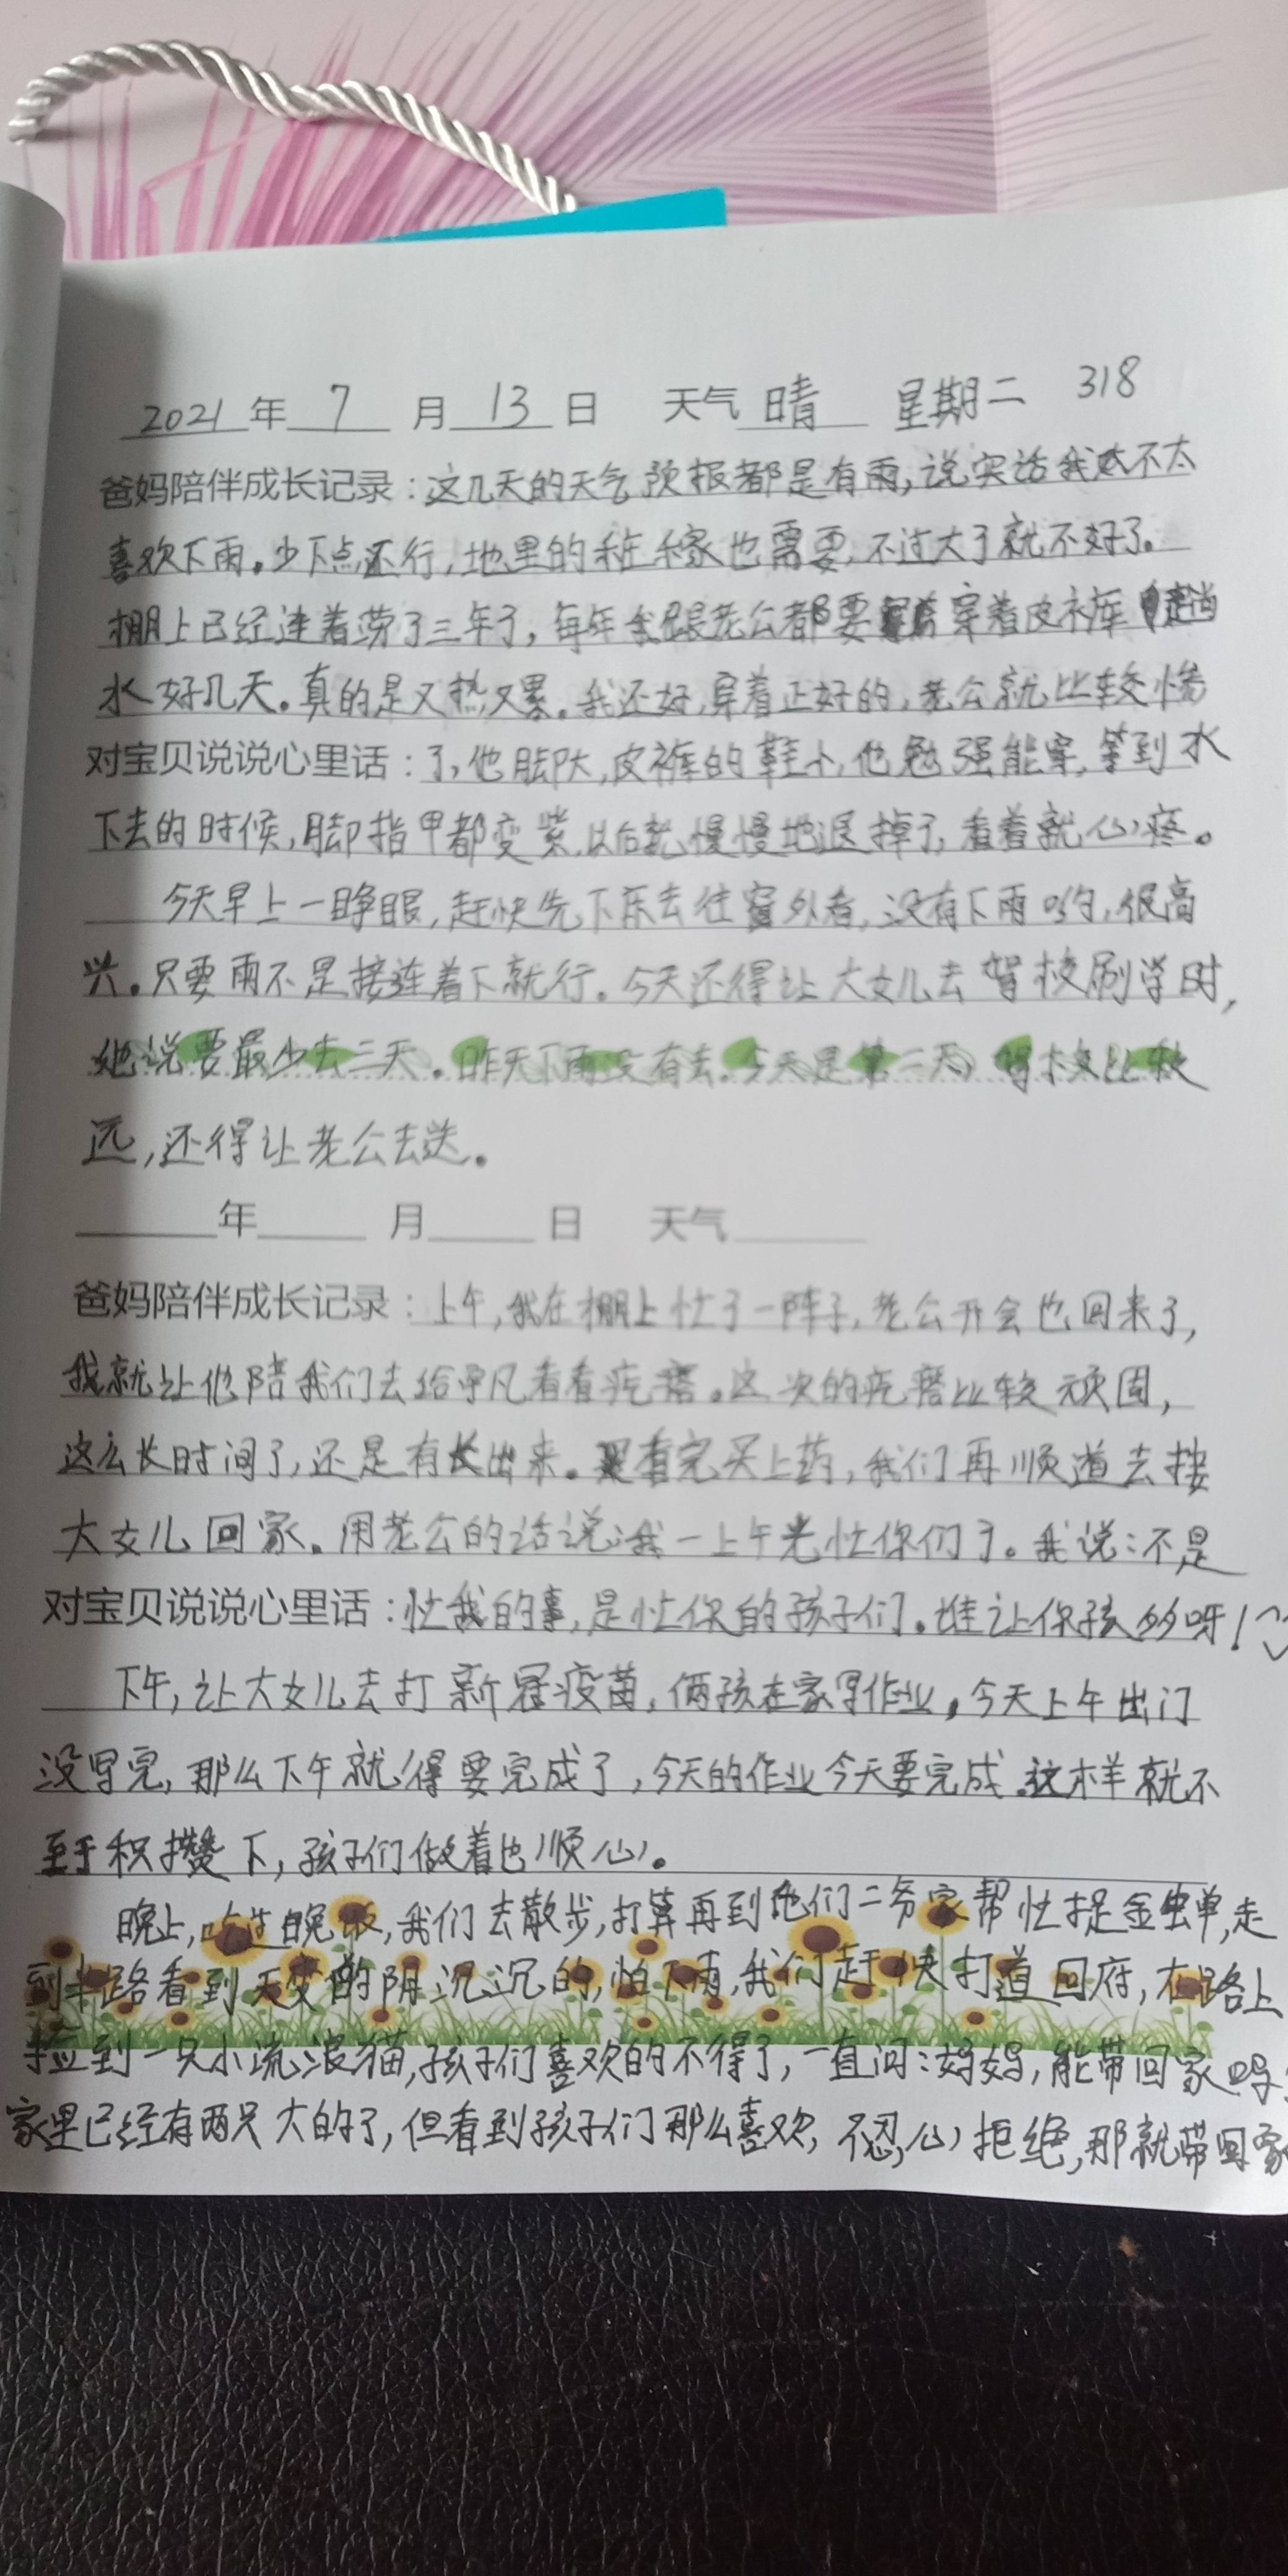 2021年 7 月 13 日 天气 晴 星期二 318
爸妈陪伴成长记录：这几天的天气预报都是有雨，说实话我不太
喜欢下雨。少下点还行，地里的庄稼也需要，不过大了就不好了。
棚上已经连着涝了三年了，每年我跟老公都要穿着皮裤趟
水好几天。真的是又热又累。我还好，穿着正好的，老公就比较惨
对宝贝说说心里话：了，他脚大，皮裤的鞋小，他勉强能穿，等到水
下去的时候，脚指甲都变紫，以后就慢慢地退掉了，看着就心疼。
今天早上一睁眼，赶快先下床去往窗外看，没有下雨哟，很高
兴。只要雨不是接连着下就行。今天还得让大女儿去驾校刷学时，
她说要最少去三天。昨天下雨没有去。今天是第二天，驾校比较
远，还得让老公去送。
年 月 日 天气
爸妈陪伴成长记录：上午，我在棚上忙了一阵子，老公开会也回来了，
我就让他陪我们去给凡看看疙瘩。这次的疙瘩比较顽固，
这么长时间了，还是有长出来。看完买上药，我们再顺道去接
大女儿回家。用老公的话说：我一上午光忙你们了。我说：不是
对宝贝说说心里话：忙我的事，是忙你的孩子们。谁让你孩多呀！
下午，让大女儿去打新冠疫苗，俩孩在家写作业。今天上午出门
没写完，那么下午就得要完成了，今天的作业今天要完成。这样就不
至于积攒下，孩子们做着也顺心。
晚上，吃过晚饭，我们去散步，打算再到他们二爷家帮忙捉金蝉，走
到半路看到天变的阴沉沉的，怕下雨，我们赶快打道回府，在路上
捡到一只小流浪猫，孩子们喜欢的不得了，一直问：妈妈，能带回家吗？
家里已经有两只大的了，但看到孩子们那么喜欢，不忍心拒绝，那就带回家